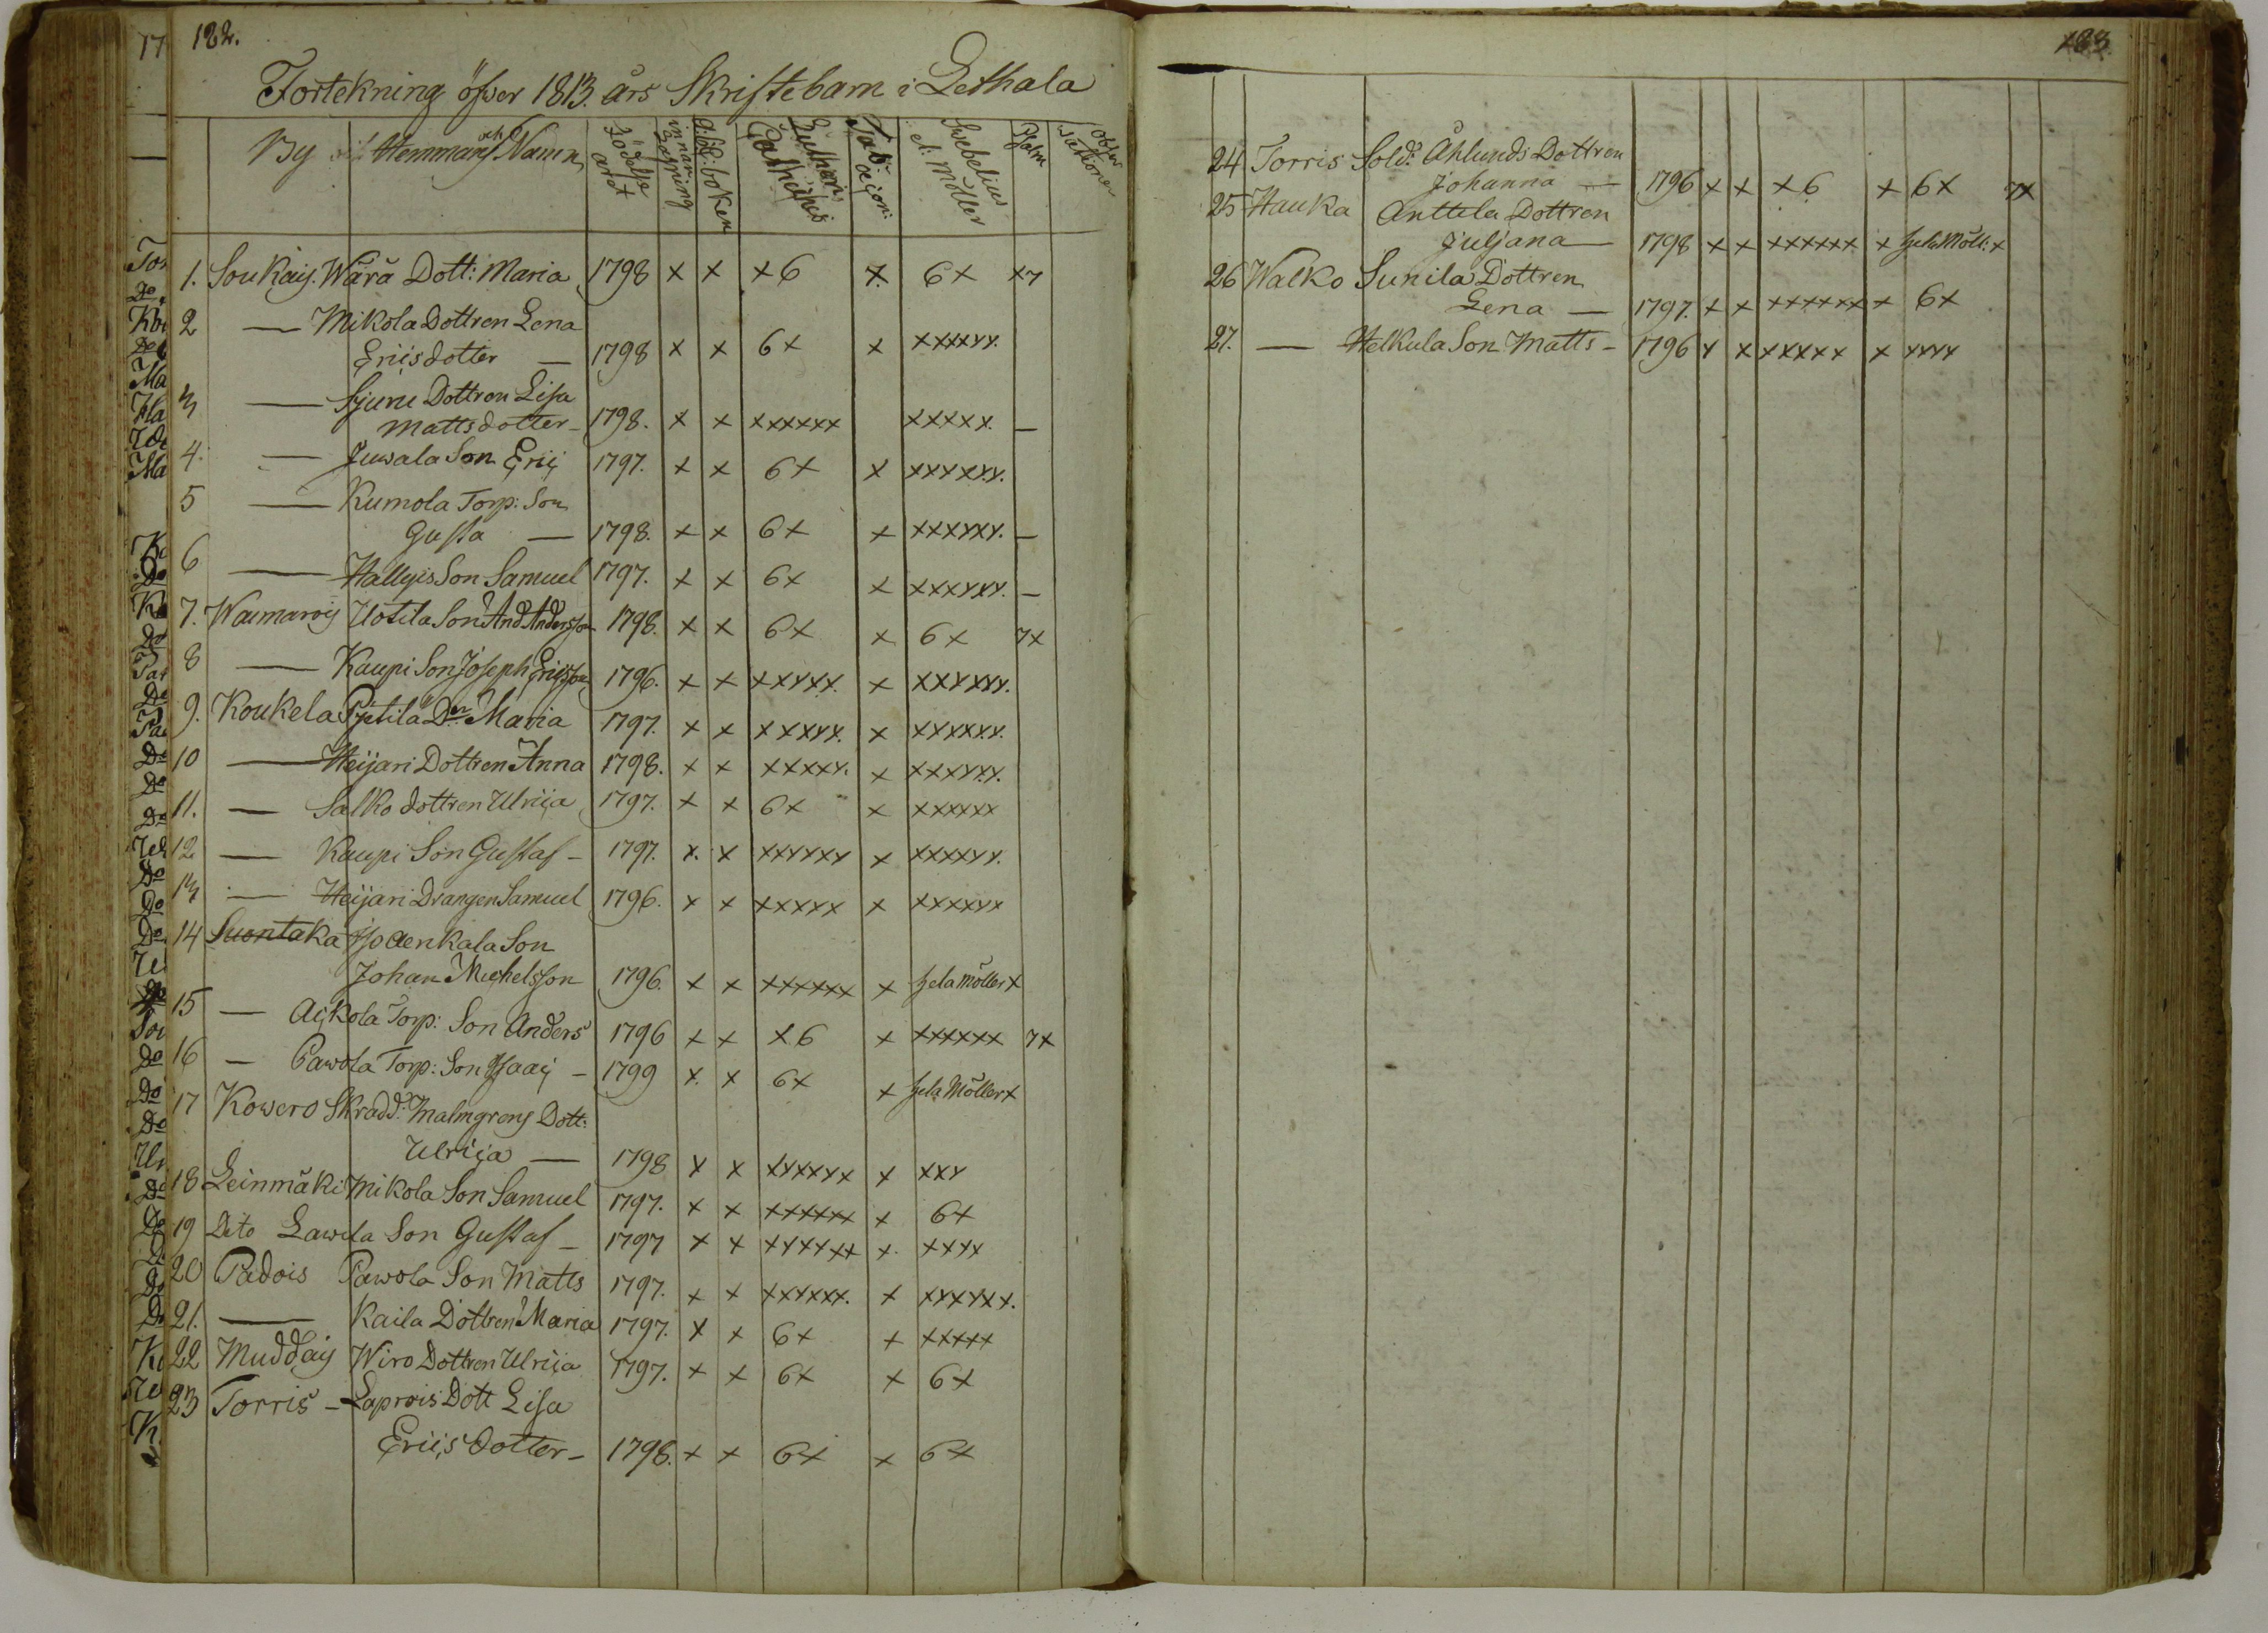 17 182.
Förtekning öfver 1813. års Skriftebarn i Lethala
By och Hemmans Namn | födelse året | innan läsning | a:b:c: boken | Lutheri Catheches | Tab: œcon: | Swebelius el: Möller | Psalm | observationer
1. Soukais. Wärä Dott: Maria 1798 x x x6 x. 6x x7
2 — Mikola Dottren Lena
Ericsdotter — 1798 x x 6x x xxxxxx.
3 — Sjuru Dottren Lisa
Mattsdotter – 1798. x x xxxxxx xxxxx. –
4. — Juwala Son Eric 1797. x x 6x x xxxxxx.
5 — Kumola Torp: Son
Gusta — 1798. x x 6x x xxxxxx. –
6 — Hallyis Son Samuel 1797. x x 6x x xxxxxx. –
7. Waimarois Uotila Son And Andersson 1798. x x 6x x 6x 7x
8 — Kaupi Son Joseph Ericsson 1796. x x xxxxx. x xxxxxx.
9. Koukela Pietilä Dn Maria 1797. x x xxxxx. x xxxxxx.
10 — Heijari Dottren Anna 1798. x x xxxxx. x xxxxxx.
11. — Salko dottren Ulrica 1797. x x 6x x xxxxxx
12 — Kaupi Son Gustaf – 1797. x. x xxxxxx x xxxxxx.
13 — Heijari Drängen Samuel 1796. x x xxxxx x xxxxxx
14 Suontaka Iso Aenkala Son
Johan Michelsson 1796. x x xxxxxx x hela Möller x
15 — Ackola Torp: Son Anders 1796 x x x6 x xxxxxx 7x
16 – Pawola Torp: Son Isaac – 1799 x. x 6x x hela Möller x
17 Kowero Skrädd: Malmgrens Dott:
Ulrica — 1798 x x xxxxxx x xxx
18 Leinmäki Mikola Son Samuel 1797. x x xxxxxx x 6x
19 Dito Lawila Son Gustaf – 1797 x x xxxxxx x. xxxx
20 Padois Pawola Son Matts 1797. x x xxxxxx. x xxxxxx.
21. — Kaila Dottren Maria 1797. x x 6x x xxxxx
22 Muddais Wiro Dottren Ulrica 1797. x x 6x x 6x
23 Torris – Laprois Dott Lisa
Erics Dotter – 1798. x x 6x x 6x
183
24 Torris Sold: Åhlunds Dottren
Johanna — 1796 x x x6 x 6x 7x
25 Hauka Anttila Dottren
Juljana — 1798 x x xxxxxx x hela Möll: x
26 Walko Sunila Dottren
Lena — 1797. x x xxxxxx x 6x
27. — Helkula Son Matts – 1796 x x xxxxx x xxxx